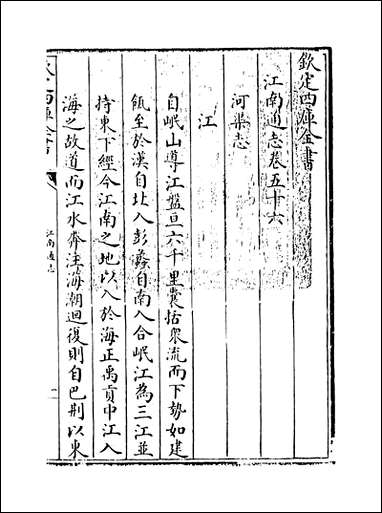 欽定四庫全書
江南通志卷五十六
河渠志
江
自岷山導江盤亘六千里囊括衆流而下勢如建
瓴至於漢自北入彭蠡自南入合岷江為三江並
持東下經今江南之地以入於海正禹貢中江入
海之故道而江水奔注海潮迴復則自巴荆以東
江南通志